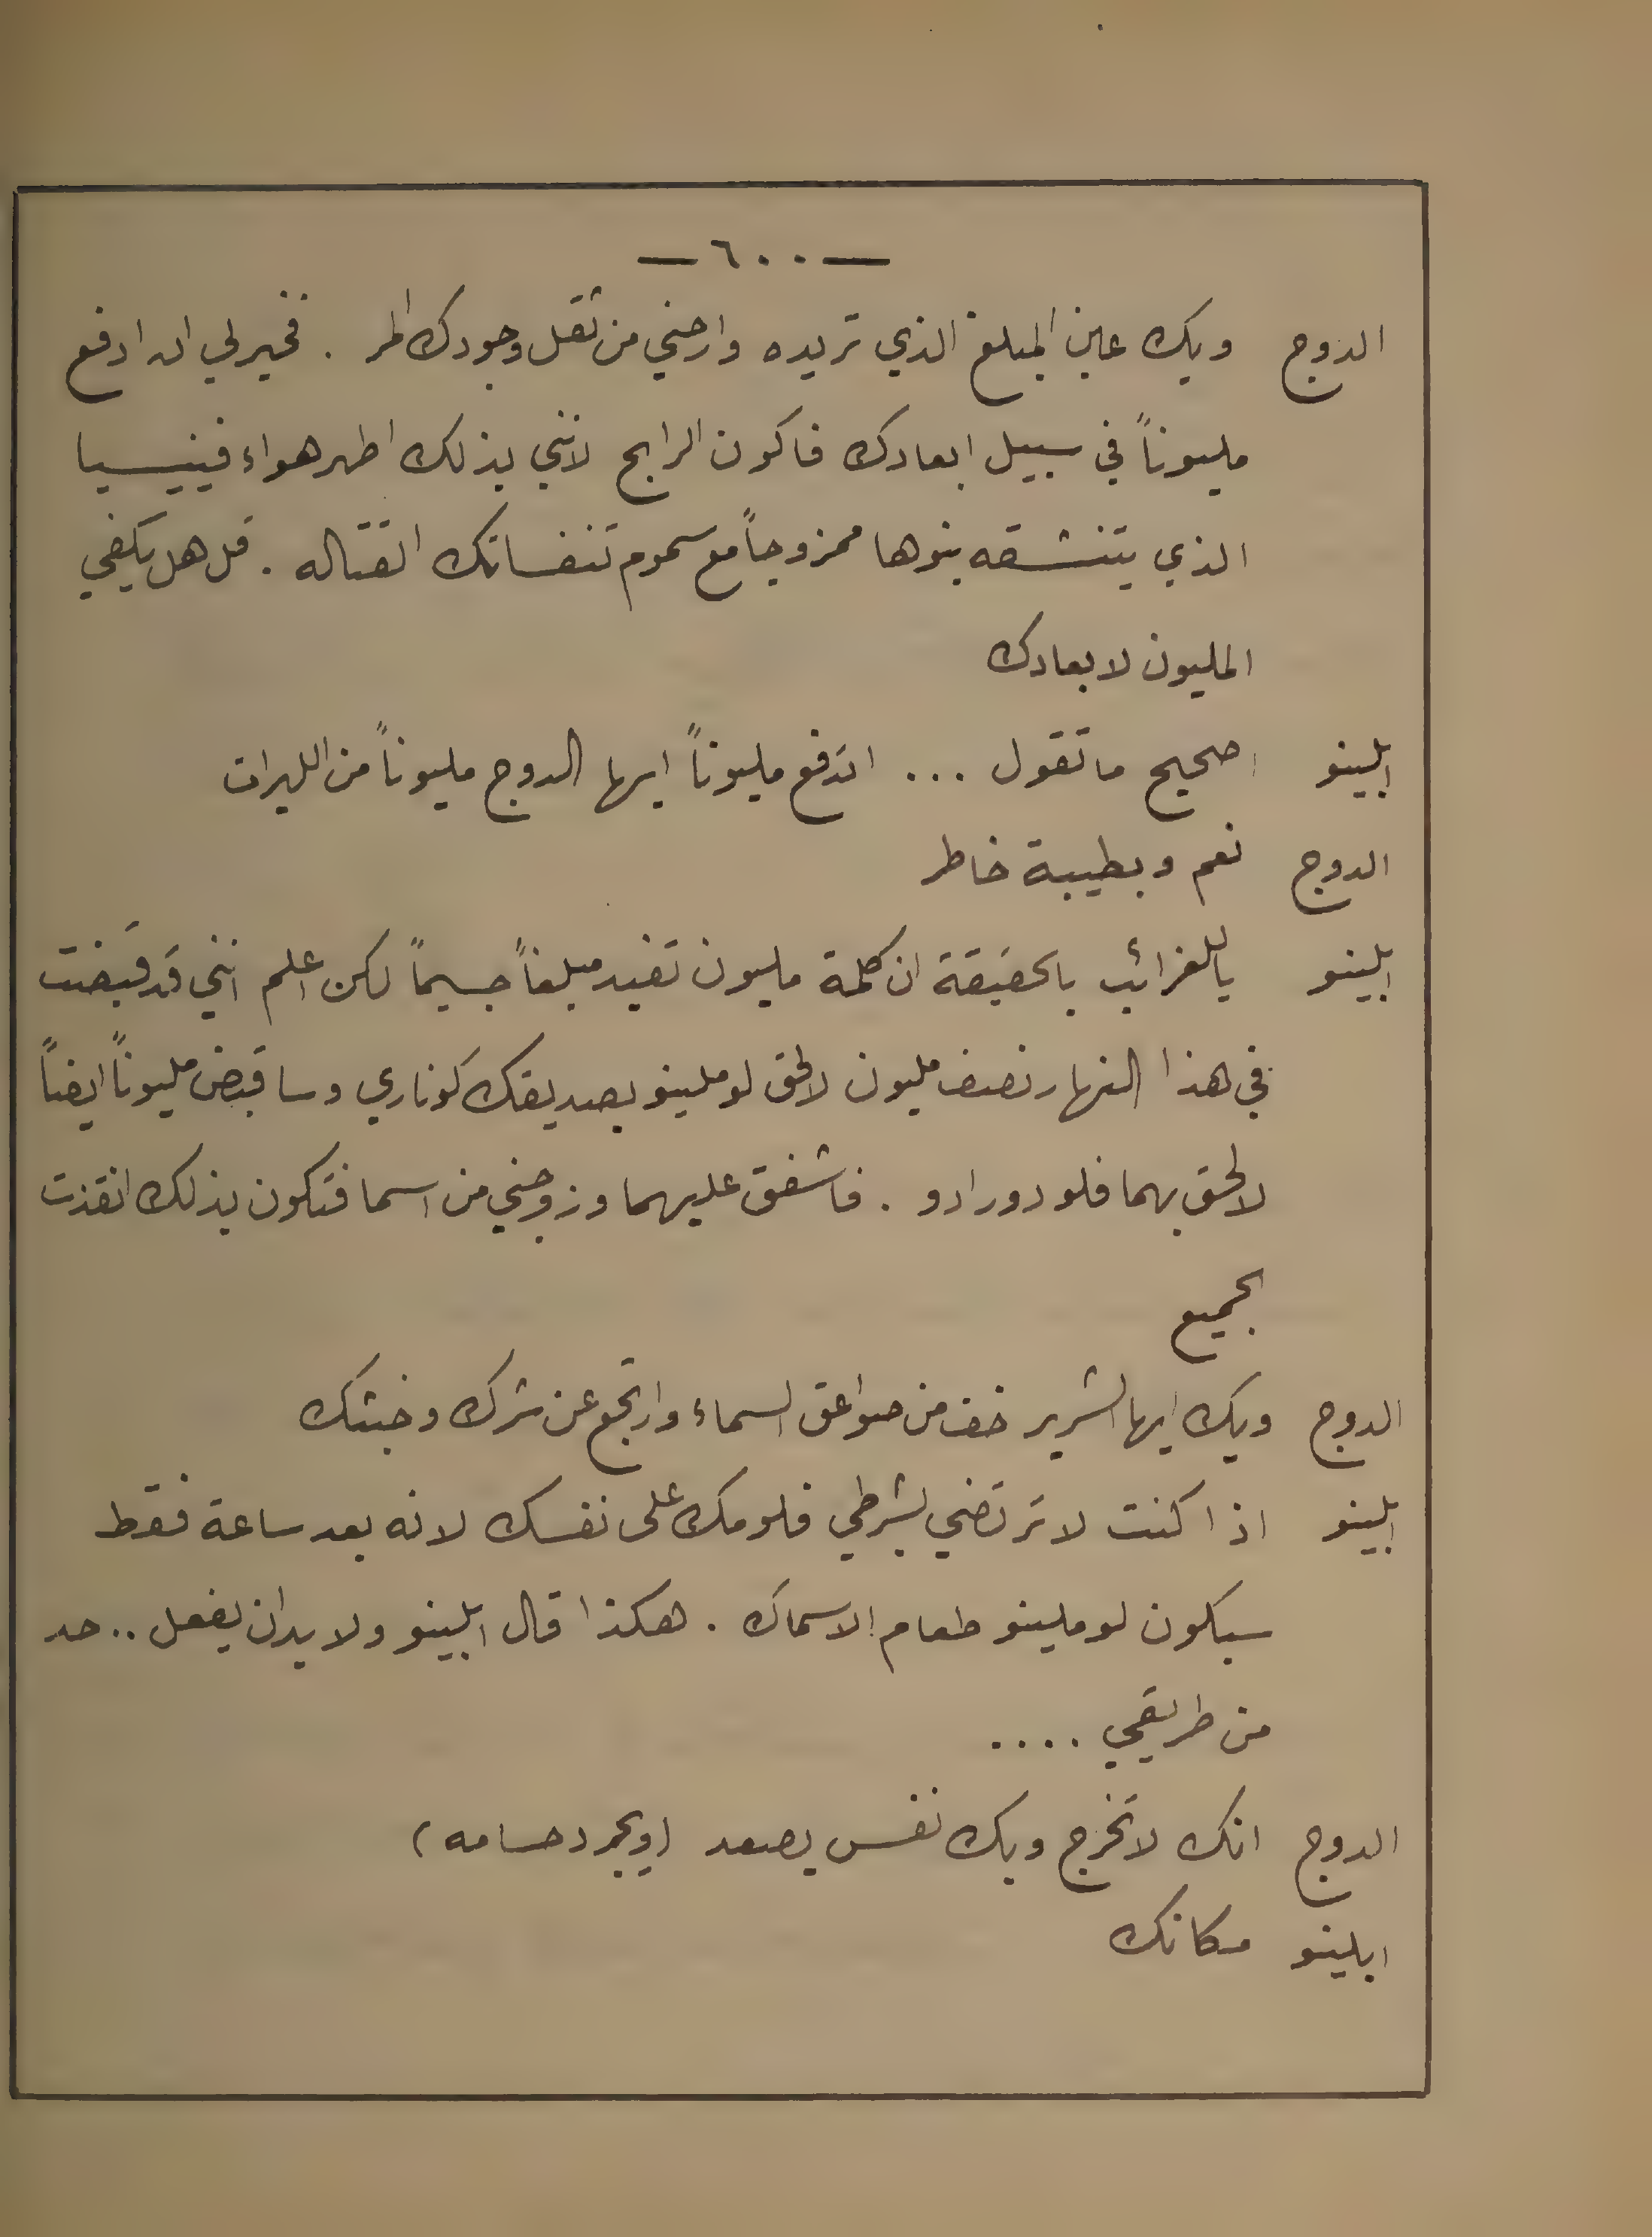 — ٦٠٠ —
الدوج ويك عين المبلغ الذي تريده وارحني من ثقل وجودك المر . فخير لي ان ادفع
مليوناً في سبيل ابعادك فاكون الرابح لانني بذلك اطهر هواء فينيسيا
الذي يتنشقه بنوها ممزوجاً مع سموم تنفساتك القتاله . قل هل يكفي
المليون لابعادك
ابلينو اصحيح ما تقول ... اتدفع مليوناً ايها الدوج مليوناً من الليرات
الدوج نعم وبطيبة خاطر
ابلينو ياللغرائب بالحقيقة ان كلمة مليون تفيد مبلغاً جسيماً لكن اعلم انني قد قبضت
في هذا النهار نصف مليون لالحق لوملينو بصديقك كوناري وساقبض مليوناً ايضاً
لالحق بهما فلودورادو . فاشفق عليهما وزوجني من اسما فتكون بذلك انقذت
الجميع
الدوج ويك ايها الشرير خف من صواعق السماء وارتجع عن شرك وخبثك
ابلينو اذا كنت لا ترتضي بشرطي فلومك على نفسك لانه بعد ساعة فقط
سيكون لوملينو طعام الاسماك . هكذا قال ابلينو ولا بد ان يفعل .. حد
من طريقي ....
الدوج انك لا تخرج وبك نفس يصعد (ويجرد حسامه)
ابلينو مكانك